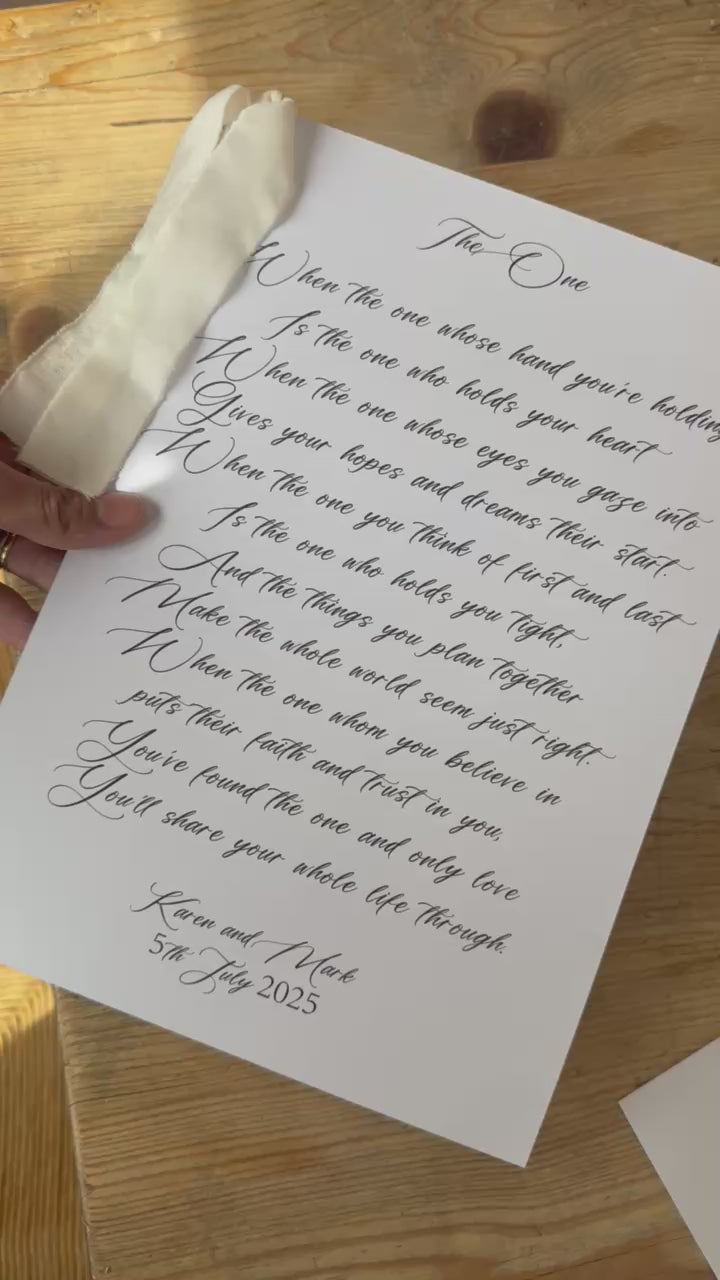 The One
When the one whose hand you're holding
Is the one who holds your heart
When the one whose eyes you gaze into
Gives your hopes and dreams their start.
When the one you think of first and last
Is the one who holds you tight,
And the things you plan together
Make the whole world seem just right.
When the one whom you believe in
puts their faith and trust in you,
You've found the one and only love
You'll share your whole life through.
Karen and Mark
5th July 2025